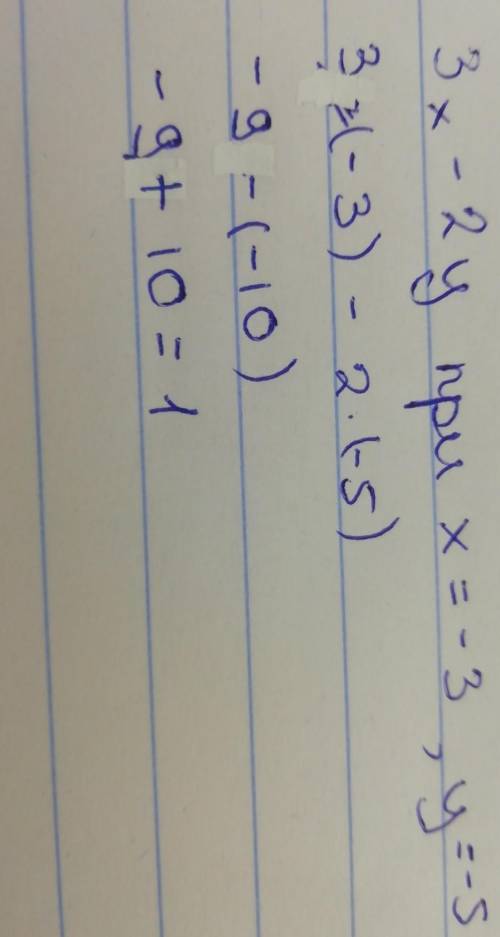 3x - 2y при x = -3, y = -5
3 · (-3) - 2 · (-5)
-9 - (-10)
-9 + 10 = 1